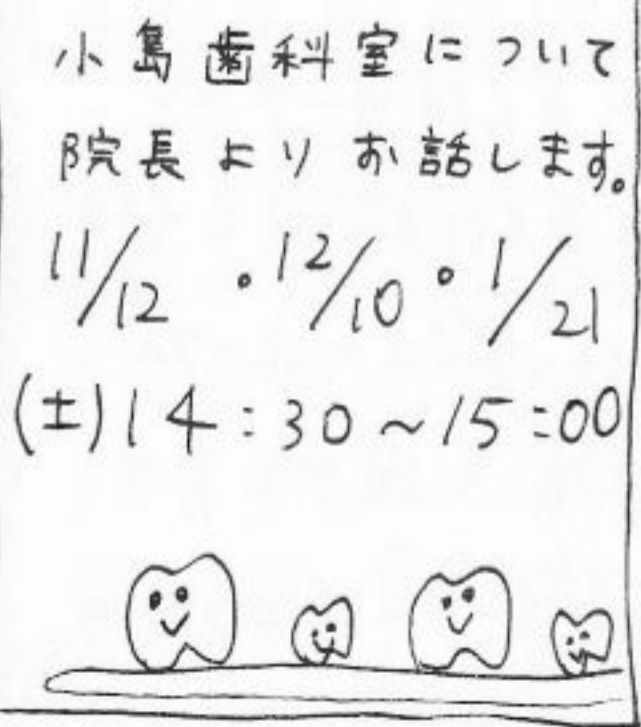 小島歯科室について
院長よりお話します。
11/12・12/10・1/21
(土)14:30~15:00